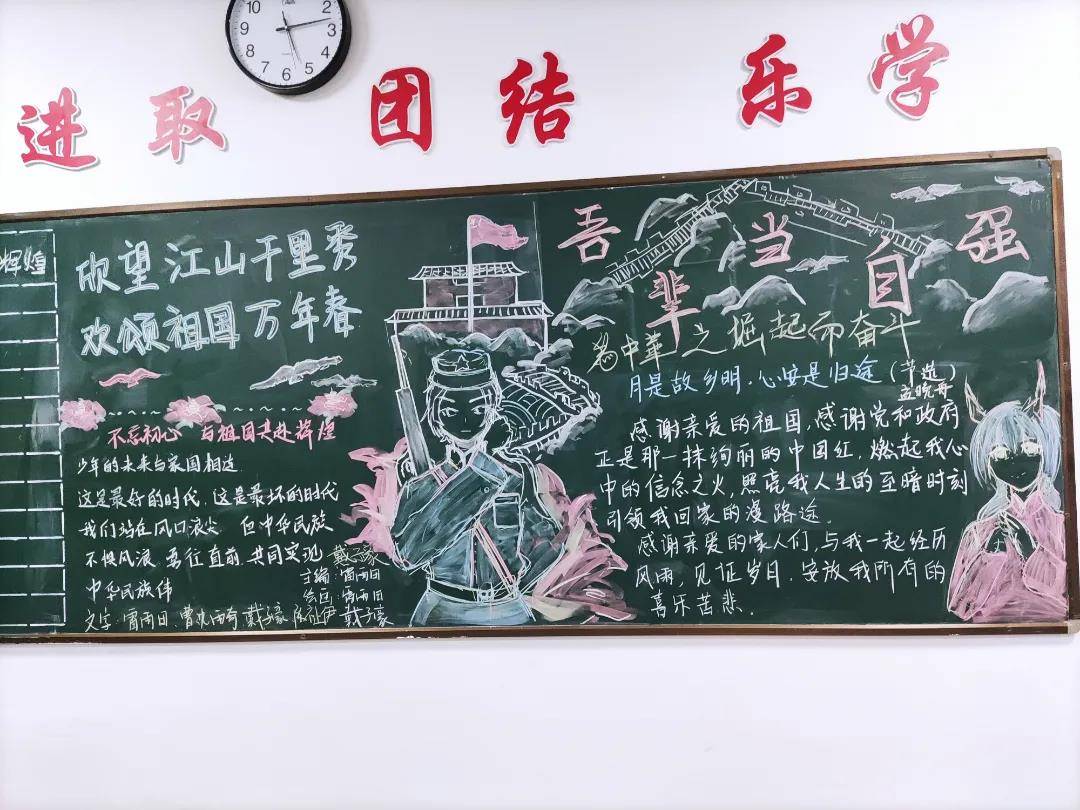 10
2
9
3
8
4
7
6
5
进取 团结 乐学
辉煌
欣望江山千里秀
欢颂祖国万年春
不忘初心 与祖国共赴辉煌
少年的未来与家国相连
这是最好的时代，这是最坏的时代
我们站在风口浪尖 但中华民族
不惧风浪，勇往直前，共同实现
中华民族伟
戴子豪
主编：雷雨田
绘图：雷雨田
文字：雷雨田
戴子豪
戴子豪
吾辈当自强
为中華之崛起而奋斗
月是故乡明，心安是归途（节选）
孟晚舟
感谢亲爱的祖国，感谢党和政府
正是那一抹绚丽的中国红，燃起我心
中的信念之火，照亮我人生的至暗时刻
引领我回家的漫路途．
感谢亲爱的家人们，与我一起经历
风雨，见证岁月，安放我所有的
喜乐苦悲．